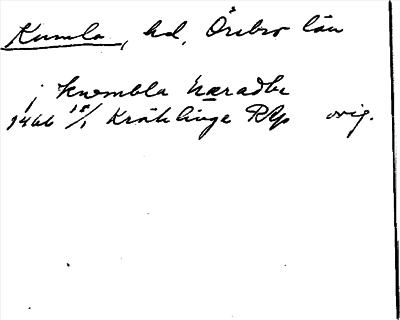 Kumla, hd, Örebro län
j knombla hæradhe
1466 15/1 Kräklinge RAp orig.